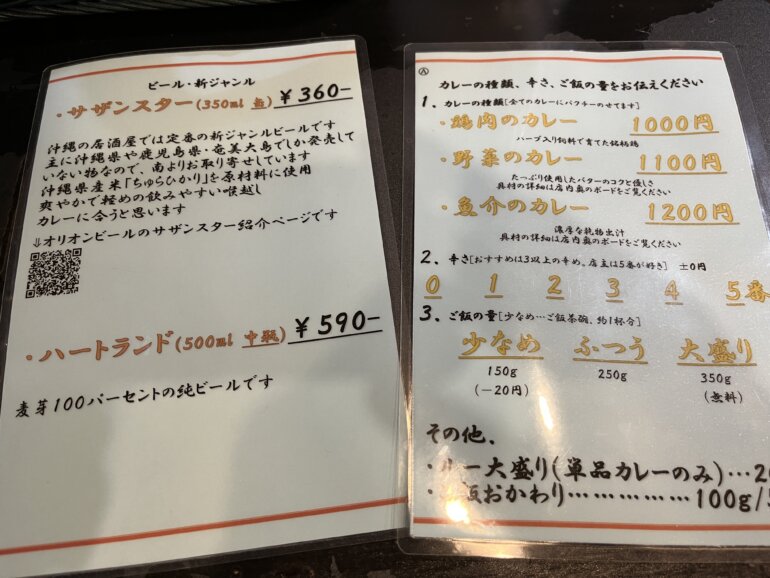 ビール・新ジャンル
・サザンスター(350ml 缶) ¥360-
沖縄の居酒屋では定番の新ジャンルビールです
主に沖縄県や鹿児島県・奄美大島でしか発売して
いない物なので、南よりお取り寄せしています
沖縄県産米「ちゅらひかり」を原材料に使用
爽やかで軽めの飲みやすい喉越し
カレーに合うと思います
⇩オリオンビールのサザンスター紹介ページです
・ハートランド(500ml 中瓶) ¥590-
麦芽100パーセントの純ビールです
Ⓐ
カレーの種類、辛さ、ご飯の量をお伝えください
1、カレーの種類[全てのカレーにパクチーのせてます]
・鶏肉のカレー 1000円
ハーブ入り飼料で育てた銘柄鶏
・野菜のカレー 1100円
たっぷり使用したバターのコクと優しさ
具材の詳細は店内奥のボードをご覧ください
・魚介のカレー 1200円
濃厚な乾物出汁
具材の詳細は店内奥のボードをご覧ください
2、辛さ[おすすめは3以上の辛め。店主は5番が好き] ±0円
0 1 2 3 4 5番
3、ご飯の量[少なめ…ご飯茶碗、約1杯分]
少なめ ふつう 大盛り
150g 250g 350g
(-20円) (無料)
その他、
・ 大盛り(単品カレーのみ)…
おかわり……………100g/